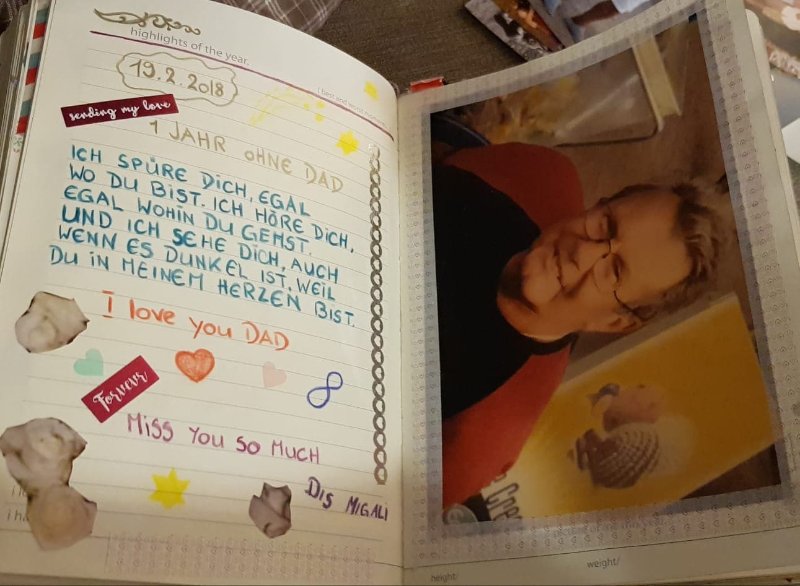 highlights of the year.
19.2.2018
sending my love
1 JAHR OHNE DAD
ICH SPÜRE DICH, EGAL
WO DU BIST. ICH HÖRE DICH,
EGAL WOHIN DU GEHST.
UND ICH SEHE DICH, AUCH
WENN ES DUNKEL IST. WEIL
DU IN MEINEM HERZEN BIST.
I love you DAD
Forever
MISS YOU SO MUCH
DIS MIGALI
height/
weight/